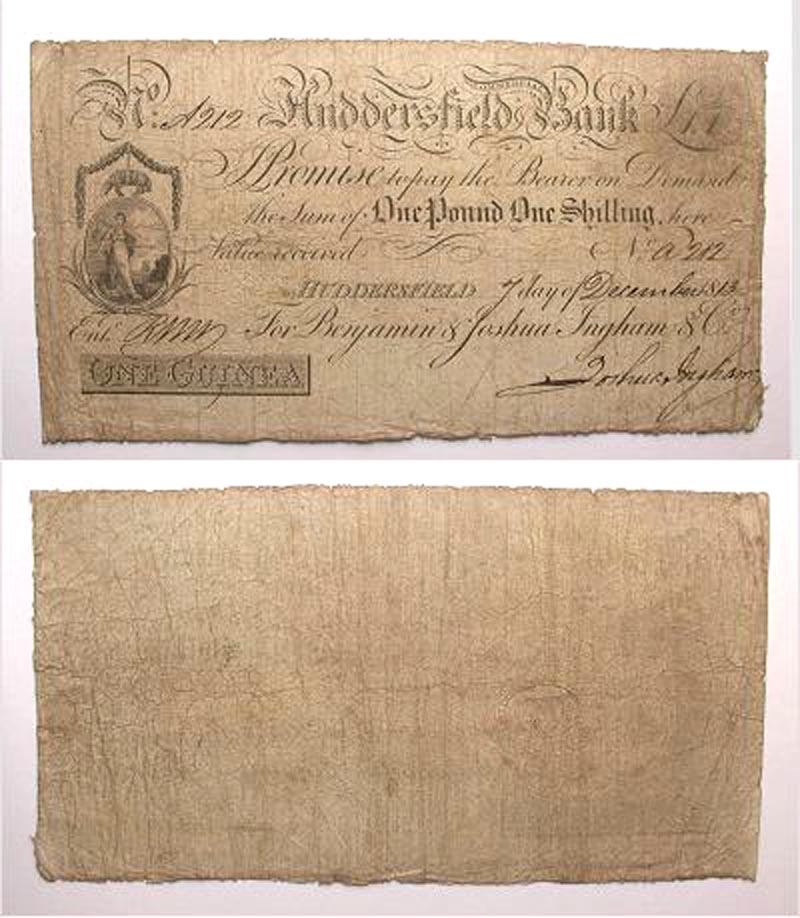 No. A212 Huddersfield Bank £1,1
I Promise to pay the Bearer on Demand
the Sum of One Pound One Shilling, here
Value received No. A 212
HUDDERSFIELD 7 day of December 1813
Entd. For Benjamin & Joshua Ingham & Co.
ONE GUINEA
Joshua Ingham